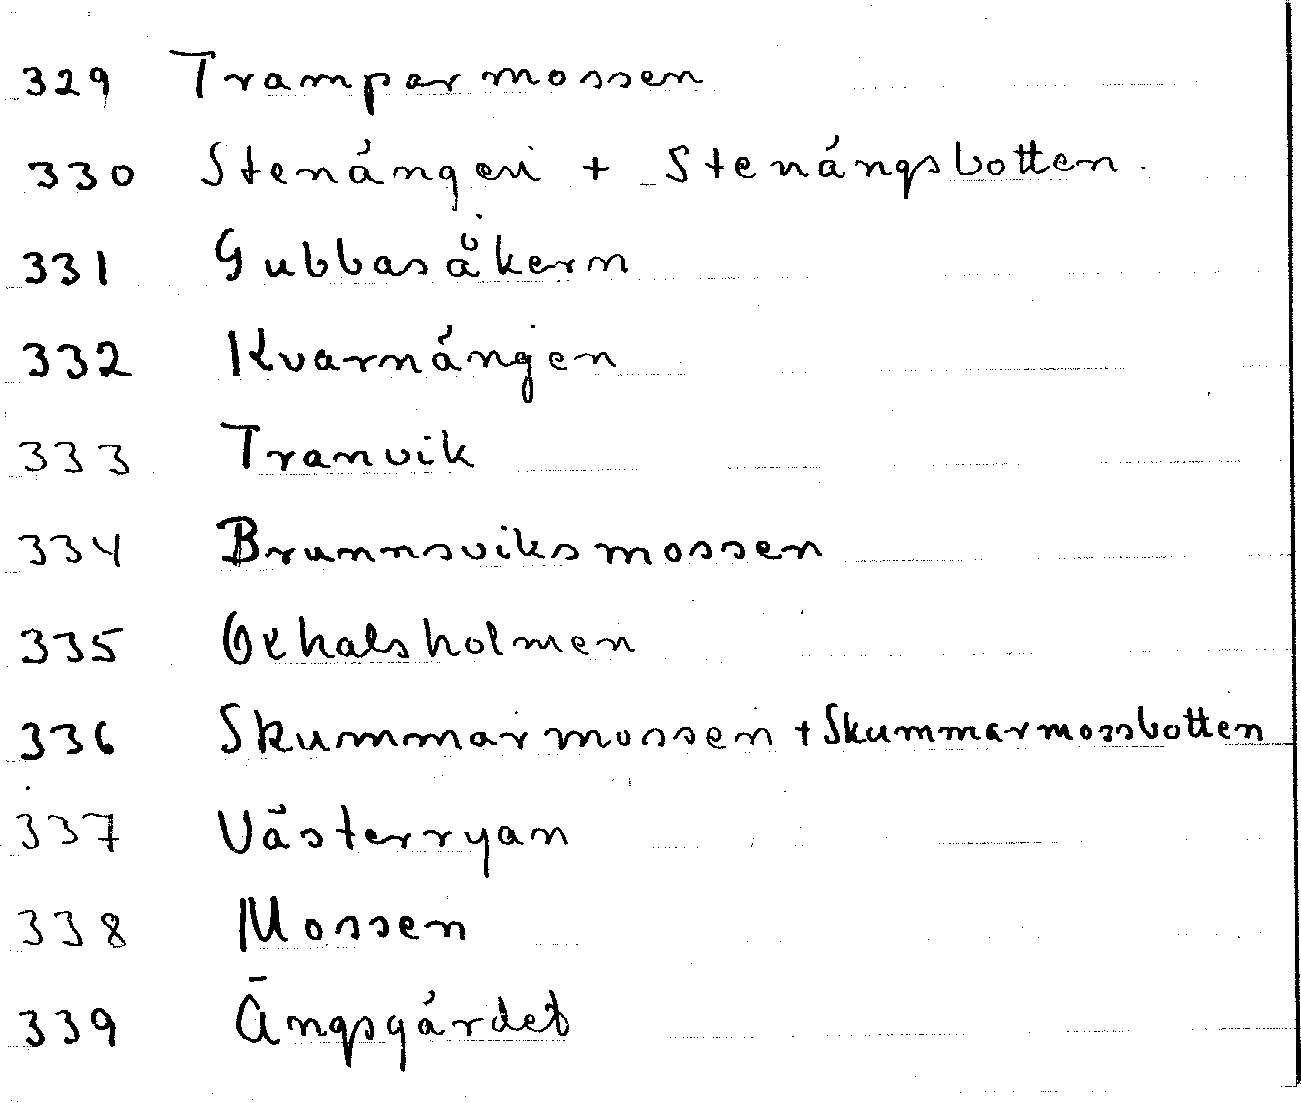 329 Tramparmossen
330 Stenängen + Stenängsbotten
331 Gubbasåkern
332 Kvarnängen
333 Tranvik
334 Brunnsviksmossen
335 Oxhalsholmen
336 Skummarmossen + Skummarmossbotten
337 Västerryan
338 Mossen
339 Ängsgärdet